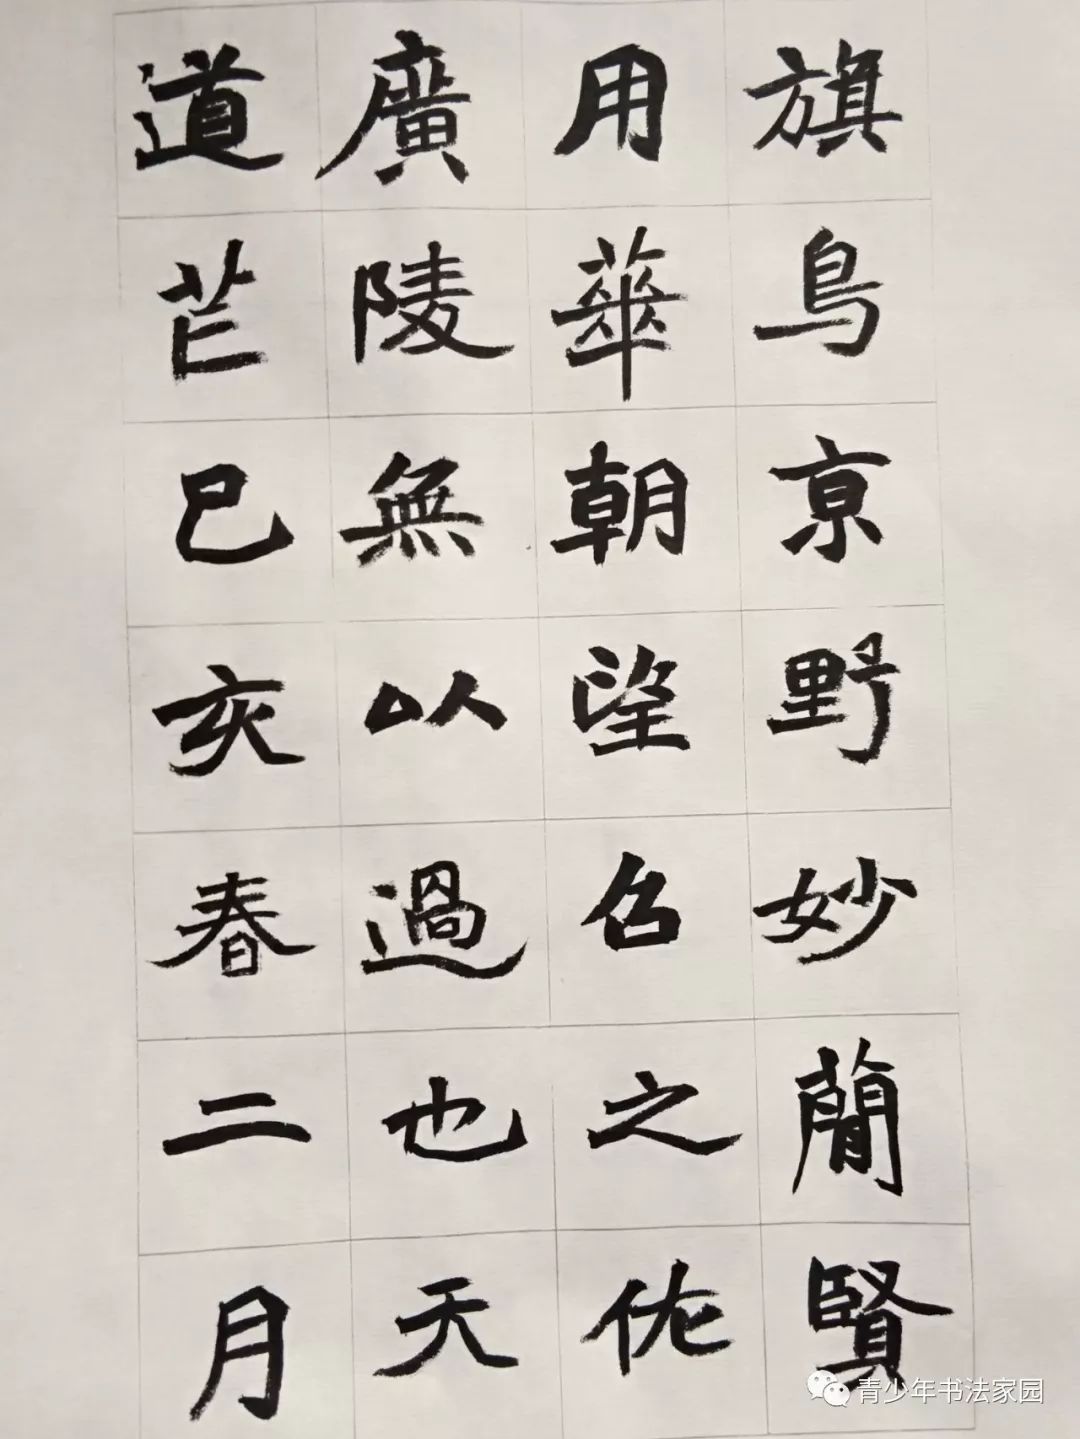 旗鳥京野妙簡賢
用華朝望召之佐
廣陵無以過也天
道芒巳亥春二月
青少年书法家园